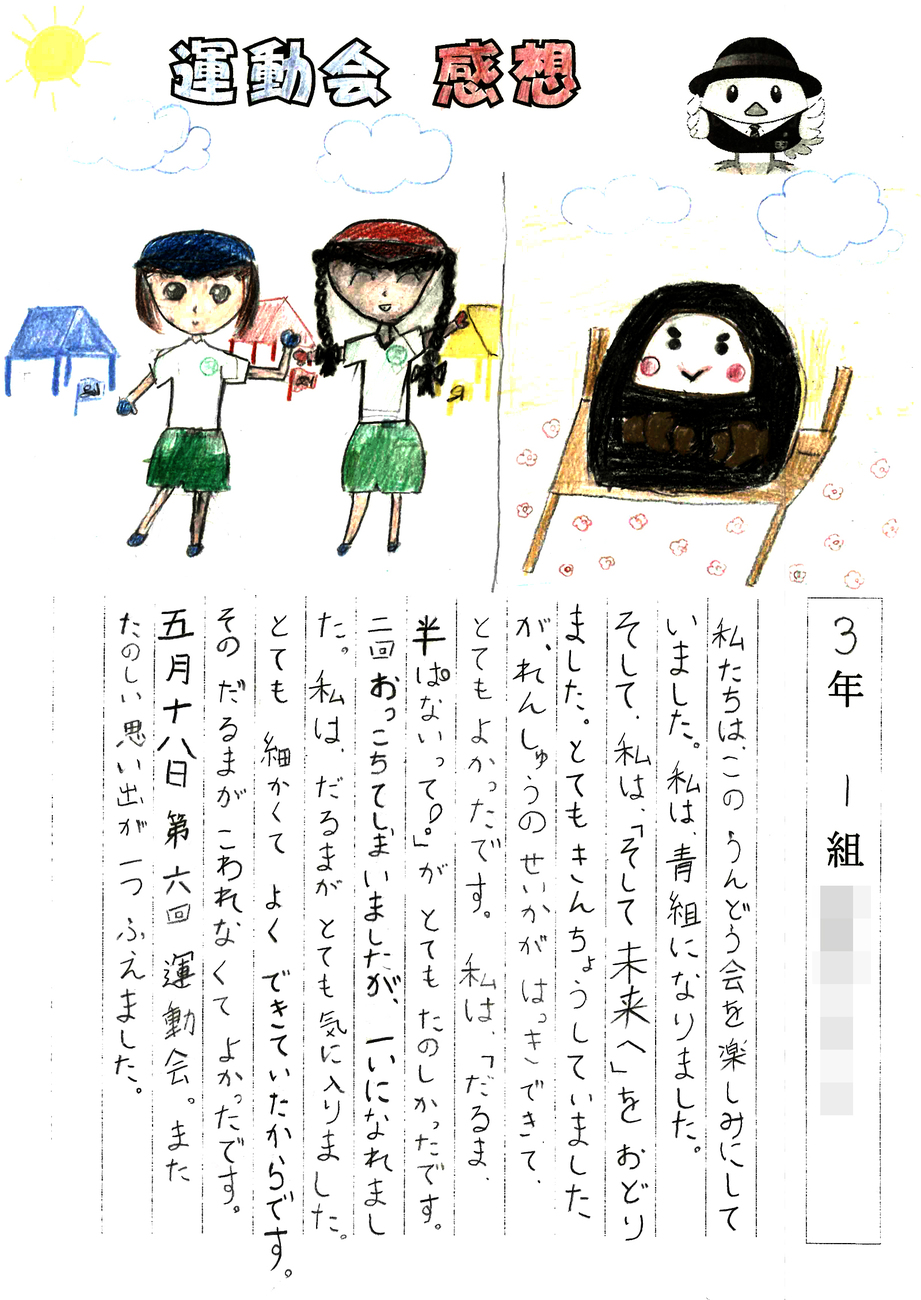 運動会 感想
3年 1組
私たちは、この うんどう会を楽しみにして
いました。私は、青組になりました。
そして、私は、「そして未来へ」を おどり
ました。とても きんちょうしていました
が、れんしゅうの せいかが はっきできて、
とてもよかったです。 私は、「だるま、
半ぱないって!。」が とても たのしかったです。
二回 おっこちてしまいましたが、一いになれまし
た。私は、だるまが とても 気に入りました。
とても 細かくて よく できていたからです。
その だるまが こわれなくて よかったです。
五月十八日 第六回 運動会。また
たのしい思い出が 一つ ふえました。